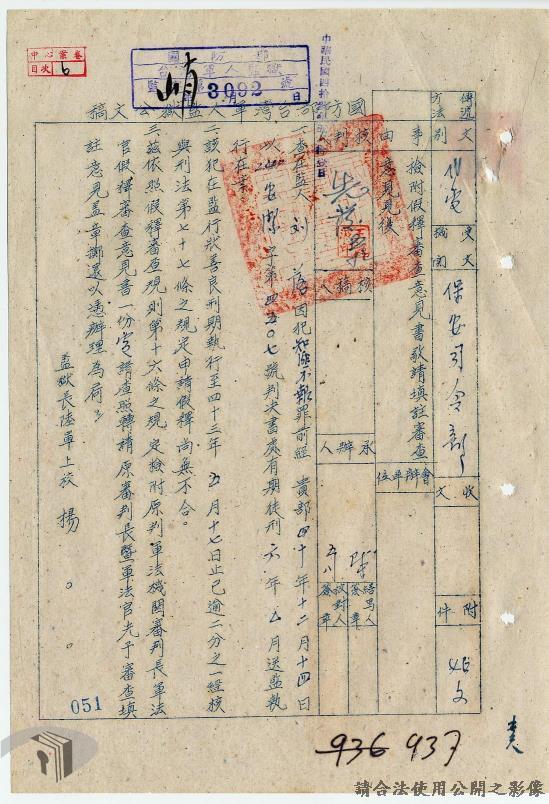 中心案卷
目次 6
國防部
台灣軍人監獄
3092
月 日
國防部台灣軍人監獄公文稿
傳遞方法
文別
代電
受文機關
保安司令部
收文
附件
如文
事由
檢附假釋審查意見書敬請填註審查
意見見復
會辦單位
核判
核稿人
承辦人
繕寫人簽章
校對人簽章
一、查在監人 刘 因犯知匪不報罪前經 貴部四十年十二月十四日
以 安潔字第四五〇七號判決書處有期徒刑六年 月送監執
行在案
二、該犯在監行狀善良刑期執行至四十三年五月十七日止已逾二分之一經核
與刑法第七十七條之規定申請假釋尚無不合。
三、茲依照假釋審查規則第十六條之規定檢附原判軍法機關審判長軍法
官假釋審查意見書一份 請查照轉請原審判長暨軍法官先予審查填
註意見蓋章擲還以憑辦理為荷
監獄長陸軍上校 楊〇〇
051
936 937
請合法使用公開之影像